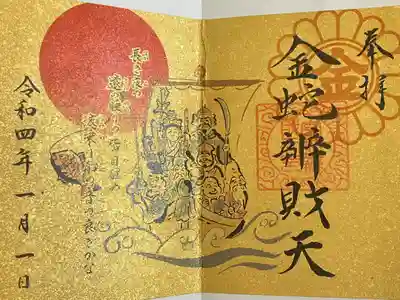 奉拝
金
金蛇辨財天
長き夜の
遠の
の皆目醒め
波乗り
の音の良きかな
令和四年一月一日